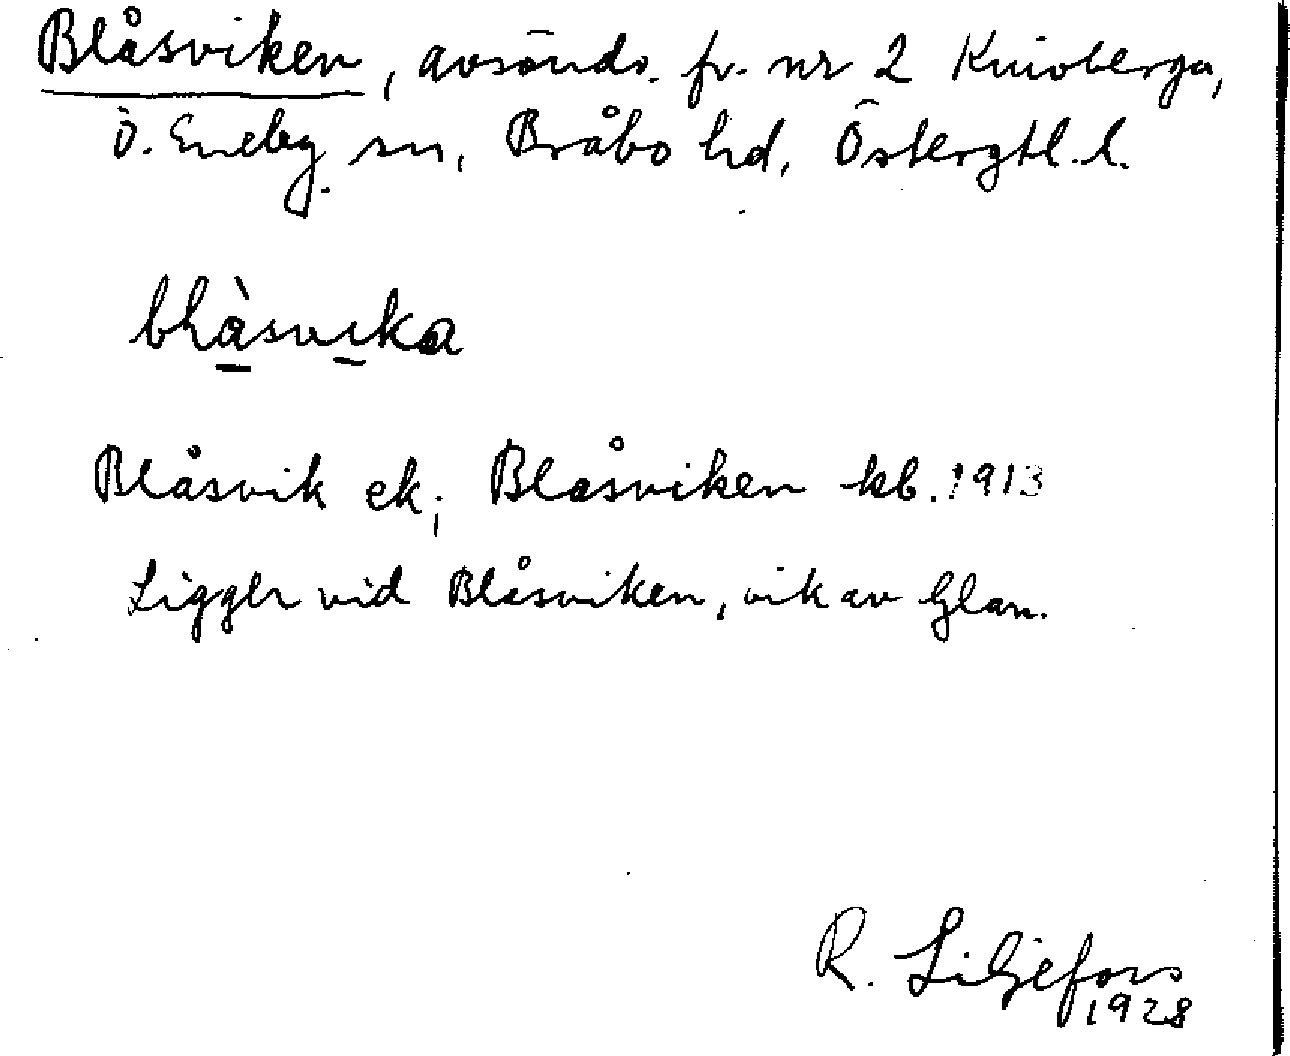 Blåsviken, avsönds. fr. nr 2 Knivberga,
Ö. Eneby sn, Bråbo hd, Östergtl. l.
blàsvika
Blåsvik ek; Blåsviken kb. 1913
Ligger vid Blåsviken, vik av Glan.
R. Liljefors
1928